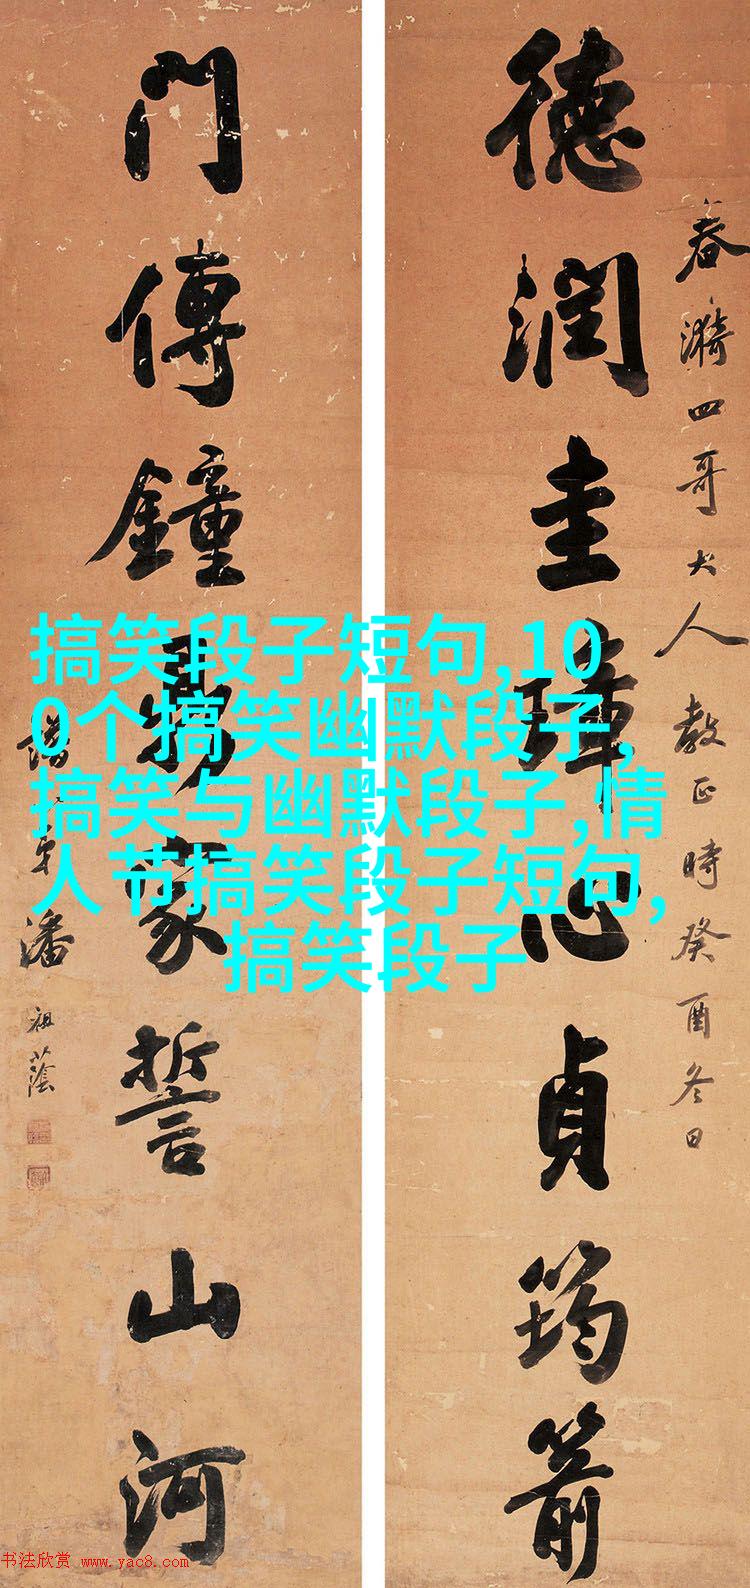 春漪四哥大人教正時癸酉冬日
德潤圭璋心貞筠箭
門傳鐘鼎家誓山河
潘祖蔭
搞笑段子短句,10
0个搞笑幽默段子,
搞笑与幽默段子,情
人节搞笑段子短句,
搞笑段子
书法欣赏 www.yac8.com